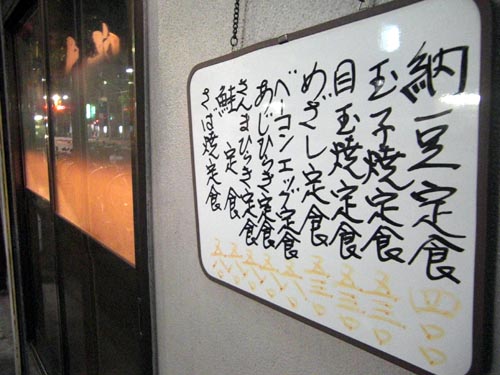 納豆定食 四〇〇
玉子焼定食 五三〇
目玉焼定食 五三〇
めざし定食 五三〇
ベーコンエッグ定食
あじひらき定食
さんまひらき定食
鮭定食
さば焼定食